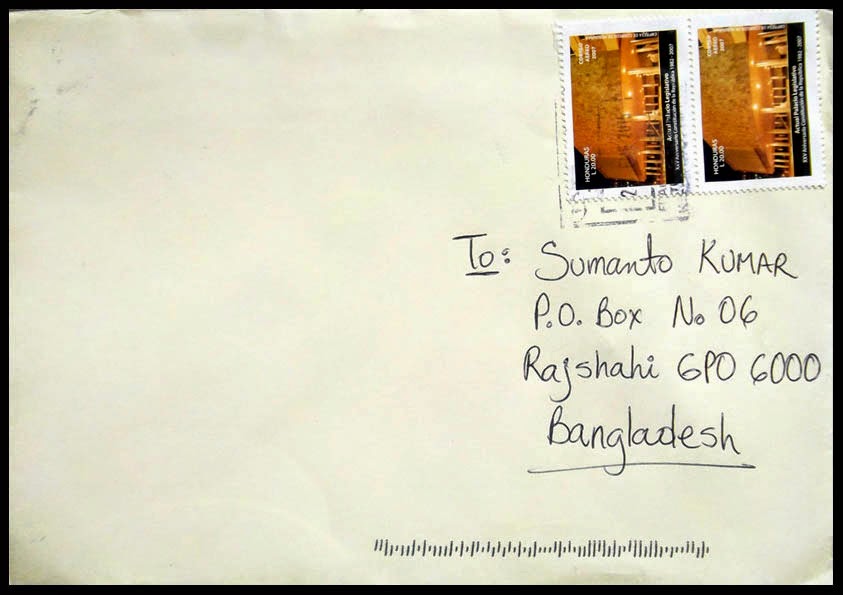 CORREO
AEREO
2007
HONDURAS
L 20.00
Actual Palacio Legislativo
XXV Aniversario Constitución de la República 1982 - 2007
CORREO
AEREO
2007
HONDURAS
L 20.00
Actual Palacio Legislativo
XXV Aniversario Constitución de la República 1982 - 2007
To: Sumanto KUMAR
P.O. Box No 06
Rajshahi GPO 6000
Bangladesh